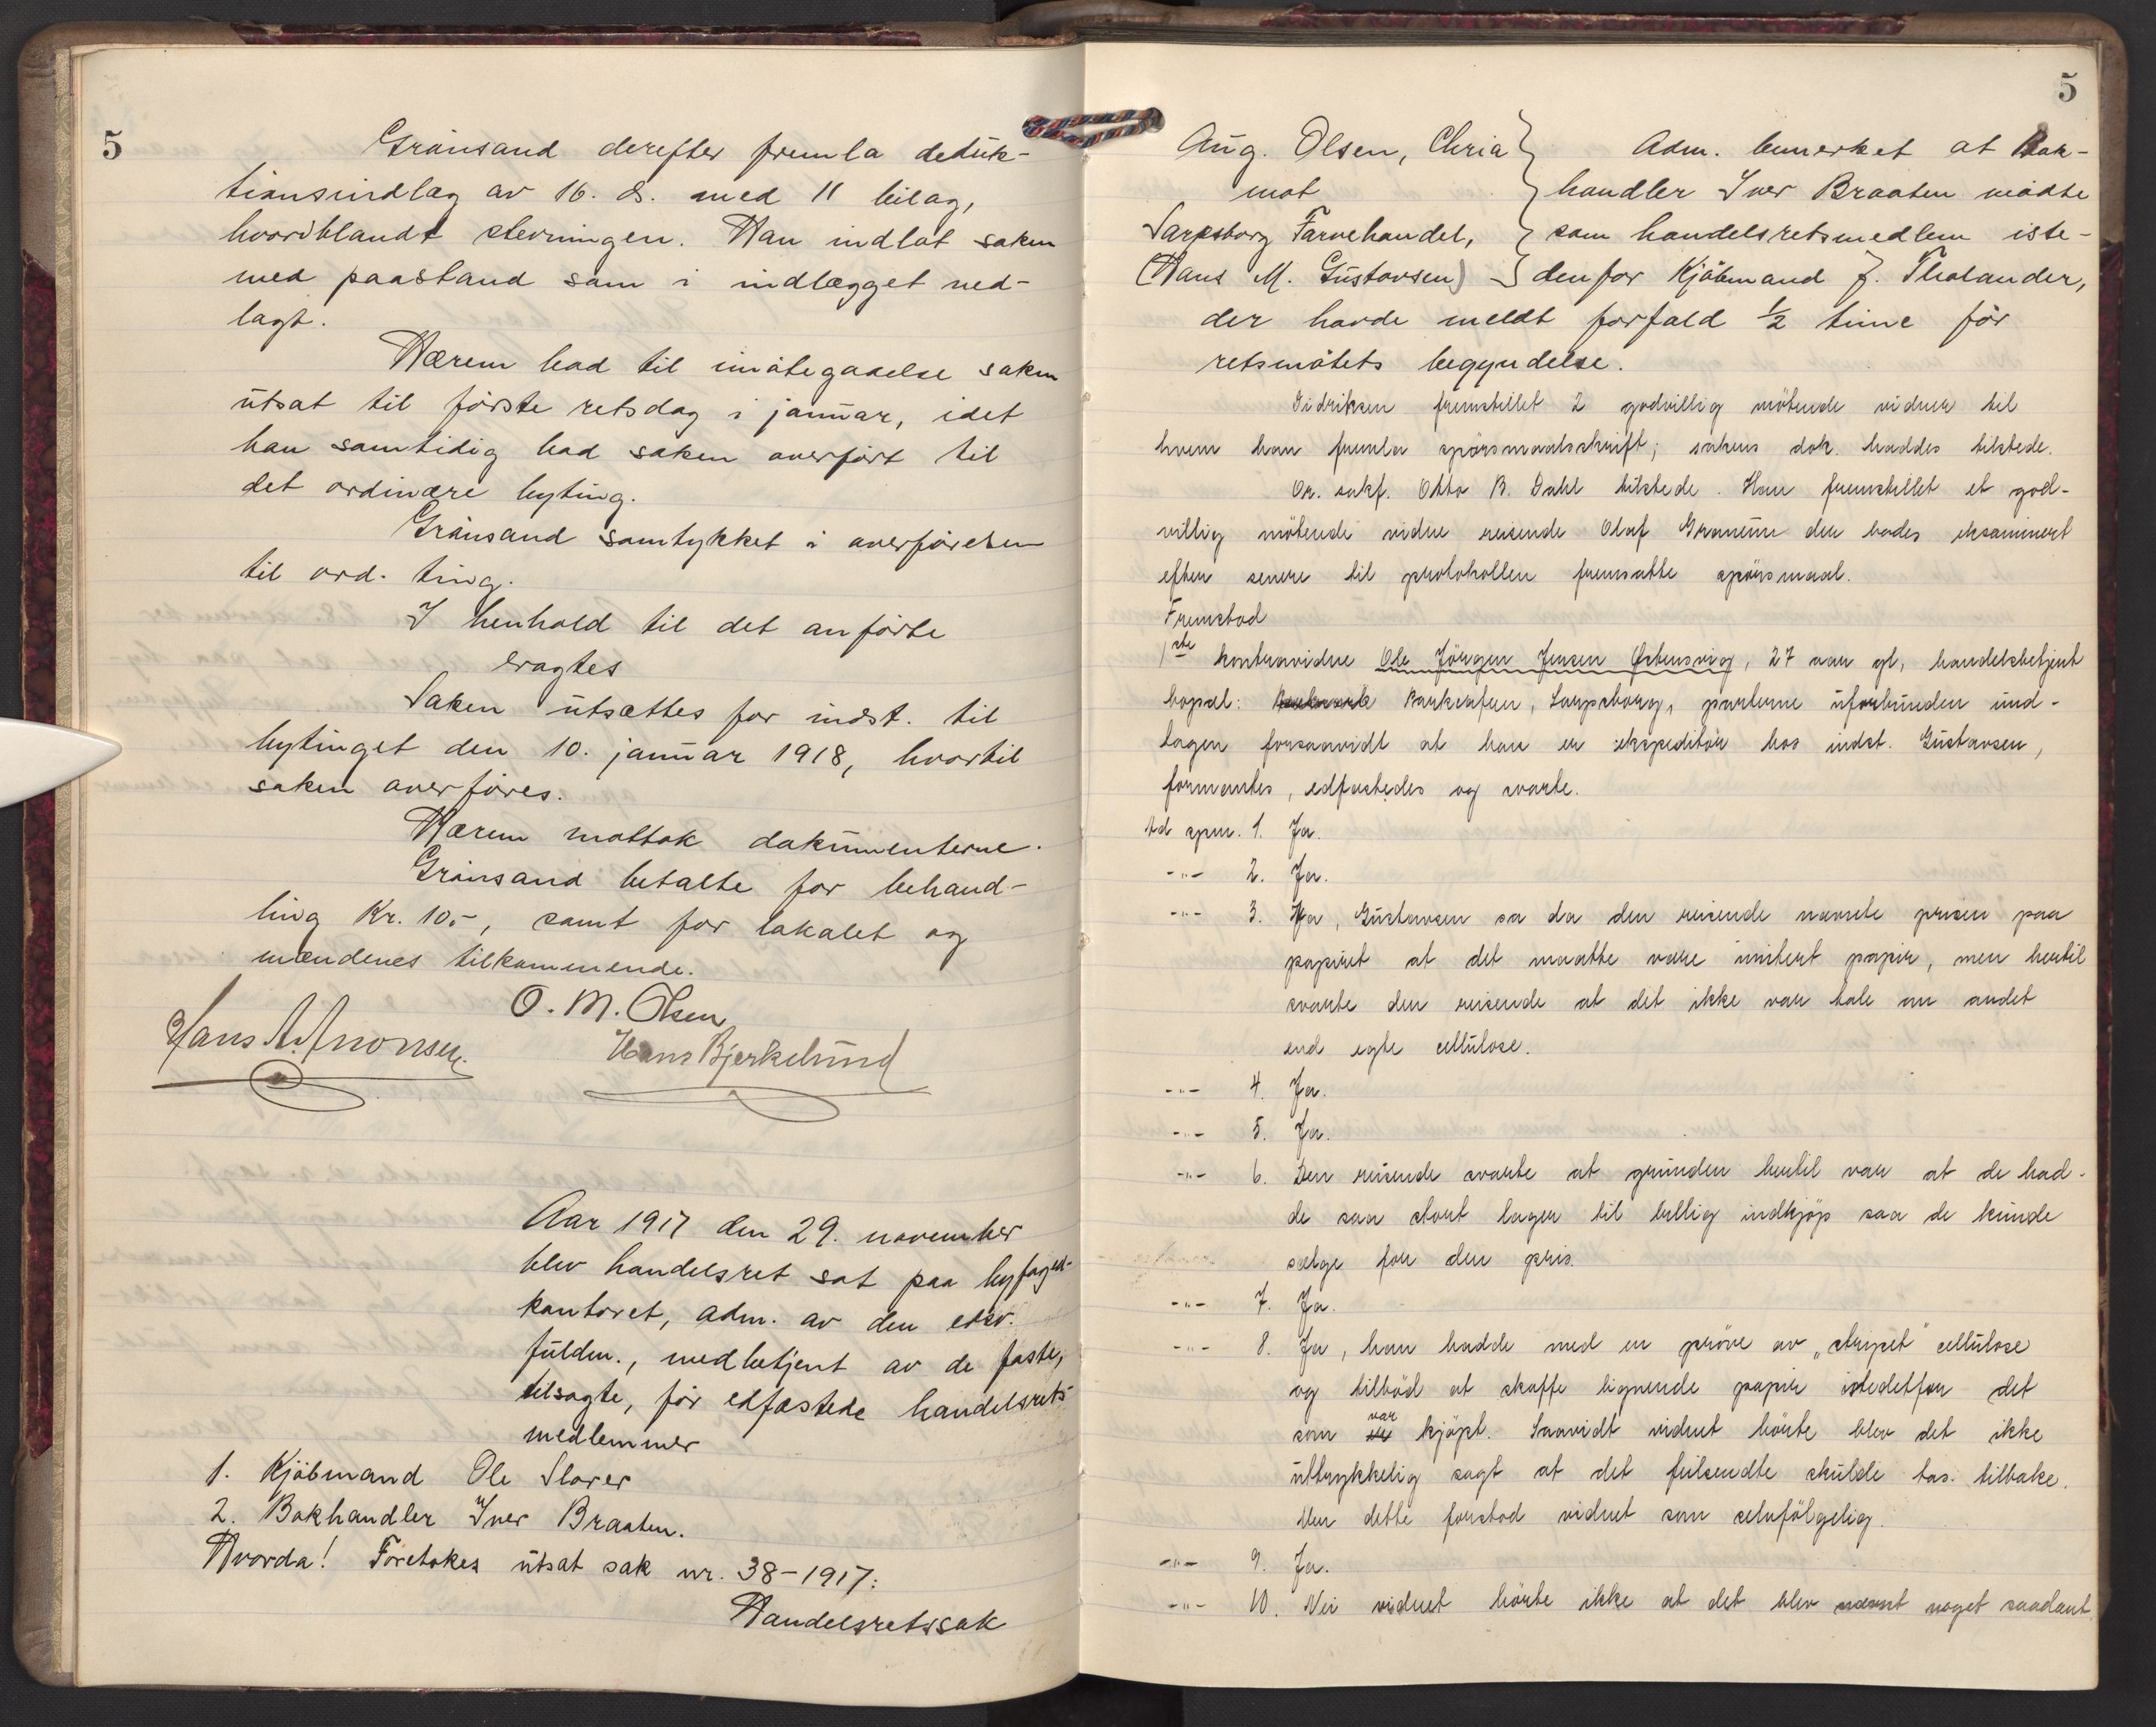 5
Grönsand derefter fremla deduk-
tionsindlæg av 16. ds. med 11 bilag,
hvoriblandt stevningen. Han indlot saken
med paastand som i indlægget ned-
lagt.
Hærem bad til imötegaaelse saken
utsat til förste retsdag i januar, idet
han samtidig bad saken overfört til
det ordinære byting.
Grönsand samtykket i overförelsen
til ord. ting.
I henhold til det anförte
eragtes
Saken utsættes for indst. til
bytinget den 10. januar 1918, hvortil
saken overföres.
Hærem mottok dokumenterne.
Grönsand betalte for behand-
ling Kr. 10.-, samt for lokalet og
mændenes tilkommende.
O. M. Olsen
Hans A. Aronsen. Hans Bjerkelund
Aar 1917 den 29. november
blev handelsret sat paa byfoged-
kontoret, adm. av den edsv.
fuldm., medbetjent av de faste,
tilsagte, för edfæstede handelsrets-
medlemmer
1. Kjöbmand Ole Storer
2. Bokhandler Iver Braaten.
Hvorda! Foretokes utsat sak nr. 38-1917:
Handelsretssak
5
Aug. Olsen, Chria } Adm. bemerket at Bok-
mot } handler Iver Braaten mödte
Sarpsborg Farvehandel, } som handelsretsmedlem iste-
(Hans M. Gustavsen) } denfor Kjöbmand J. Tholander,
der havde meldt forfald 1/2 time för
retsmötets begyndelse.
Didriksen fremstillet 2 godvillig mötende vidner til
hvem han fremla spörsmaalsskrift; sakens dok. haddes tilstede.
Or. sakf. Otto B. Dahl tilstede. Han fremstillet et god-
villig mötende vidne reisende Olaf der bades eksaminert
efter senere til protokollen fremsatte spörsmaal.
Fremstod
1ste kontravidne Ole Jörgen Jensen Örtensvig, 27 aar gl, handelsbetjent
bopæl: Borkerhus, Sarpsborg, parterne uforbunden und-
tagen forsaavidt at han er ekspeditör hos indst. Gustavsen,
formantes, edfæstedes og svarte.
td spm. 1. Ja.
-"- 2. Ja.
-"- 3. Ja, Gustavsen sa da den reisende nævnte prisen paa
papiret at det maatte være imitert papir, men hertil
svarte den reisende at det ikke var tale om andet
end egte cellulose.
-"- 4. Ja.
-"- 5. Ja.
-"- 6. Den reisende svarte at grunden hertil var at de had-
de saa stort lager til billig indkjöp saa de kunde
sælge for den pris.
-"- 7. Ja.
-"- 8. Ja, han hadde med en pröve av „stripet" cellulose
og tilböd at skaffe lignende papir istedetfor det
som var kjöpt. Saavidt vidnet hörte blev det ikke
uttrykkelig sagt at det feilsendte skulde tas tilbake.
Men dette forstod vidnet som selvfölgelig.
-"- 9. Ja.
-"- 10. Nei vidnet hörte ikke at det blev nævnt noget saadant.